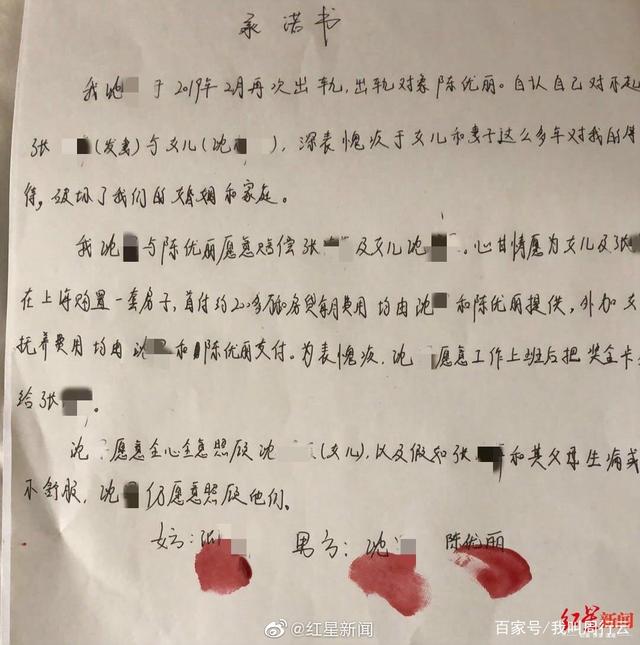 承诺书
我沈 于2019年2月再次出轨,出轨对象陈优丽。自认自己对不起
张 (发妻)与女儿(沈 ),深表愧疚于女儿和妻子这么多年对我的
待,破坏了我们的婚姻和家庭。
我沈 与陈优丽愿意赔偿张 及女儿沈 。心甘情愿为女儿及张
在上海购置一套房子,首付约200多万和房贷每月费用均由沈 和陈优丽提供,外加女
抚养费用均由沈 和陈优丽交付。为表愧疚,沈 愿意工作上班后把奖金卡
给张 。
沈 愿意全心全意照顾沈 (女儿),以及假如张 和其父母生病或
不舒服,沈 仍愿意照顾他们。
女方:张 男方:沈 陈优丽
红星新闻
@红星新闻
百家号/我叫周行云